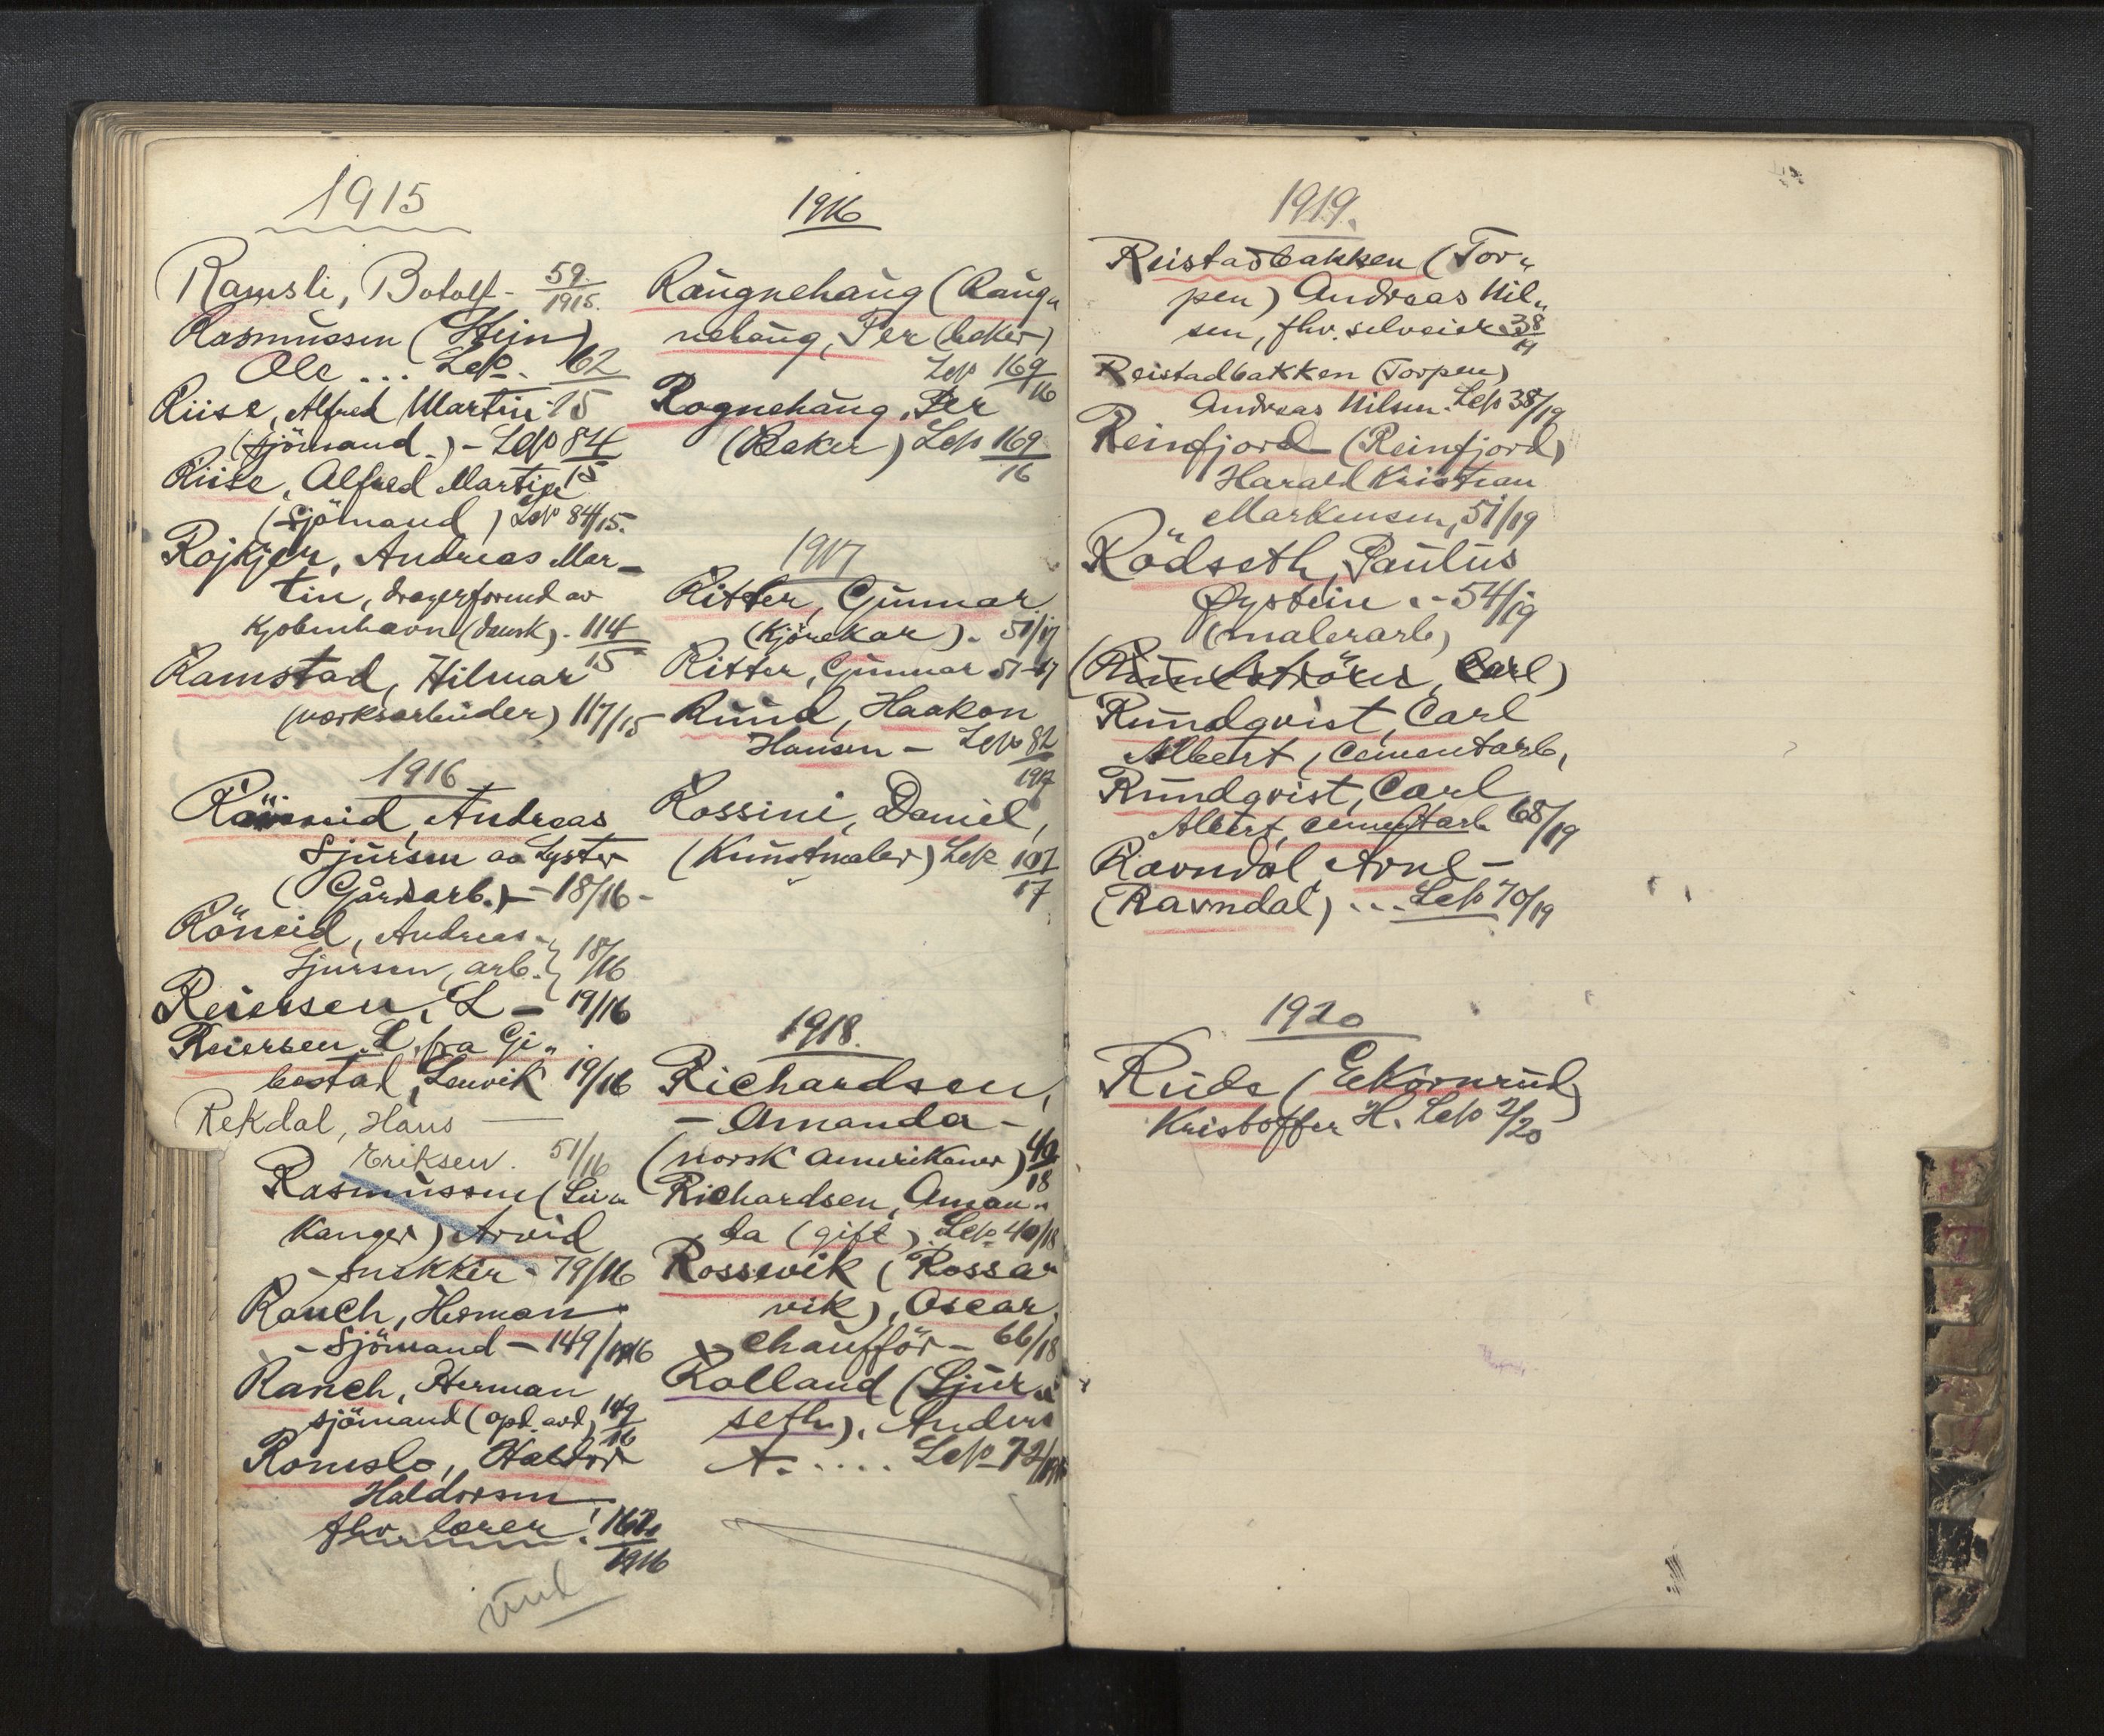 1915
Ramsli, Botolf - 59/1915.
Rasmussen (Stein)
Ole ... Lep. 62/15
Riise, Alfred Martin
(sjömand.) - Lep 84/15
Riise, Alfred Martin
(sjömand) Lep 84/15.
Rojkjer, Andreas Mar-
tin, dragerformd av
Kjøbenhavn (dansk). 114/15
Ramstad, Hilmar
(værksarbeider) 117/15
1916
Röneid, Andreas
Sjursen av Lyster
(Gårdsarb.) - 18/16 -
Röneid, Andreas
Sjursen, arb. } 18/16
Reiersen, L - 19/16
Reiersen, L. fra Gi„
bostad, Lenvik 19/16
Rekdal, Hans
Eriksen. 51/16
Rasmussen (Lei„
kanger) Arvid
- snekker - 79/16
Rauch, Herman
- Sjömand - 149/1916
Rauch, Herman
sjömand (opd. avd) 149/16
Romslo, Haldor
Haldorsen
fhv. lærer! 162/1916
1916
Raugnehaug (Raug„
nehaug, Per (beker)
Lep 169/16
Rognehaug, Per
(Beker) Lep 169/16
1917
Ritter, Gunnar
(Kjörekar). 51/17
Ritter, Gunnar 51-17
Ruud, Haakon
Hansen - Lep 82/1917
Rossini, Daniel,
(Kunstmaler) Lep 107/17
1918.
Richardsen,
- Amanda -
(norsk amerikaner) 40/18
Richardsen, Aman„
da (gift). Lep 40/18
Rossevik (Rossa„
vik), Oscar.
- chaufför - 66/18
Rolland (Sjur„
seth), Anders
A. .... Lep 72/1918
1919.
Reistadbakken (Tor„
pen) Andreas Nil„
sen, fhv. selveier 38/19
Reistadbakken (Torpen)
Andreas Nilsen. Lep 38/19
Reinfjord (Reinfjord)
Harald Kristian
Markensen, 51/19
Rödseth, Paulus
Øystein .- 54/19
(malerarb)
(Rundström, Carl)
Rundqvist, Carl
Albert, cementarb,
Rundqvist, Carl
Albert, cementarb 68/19
Ravndal Arne -
(Ravndal) ... Lep 70/19
1920
Rude (Ekornrud)
Kristoffer H. Lep 2/20